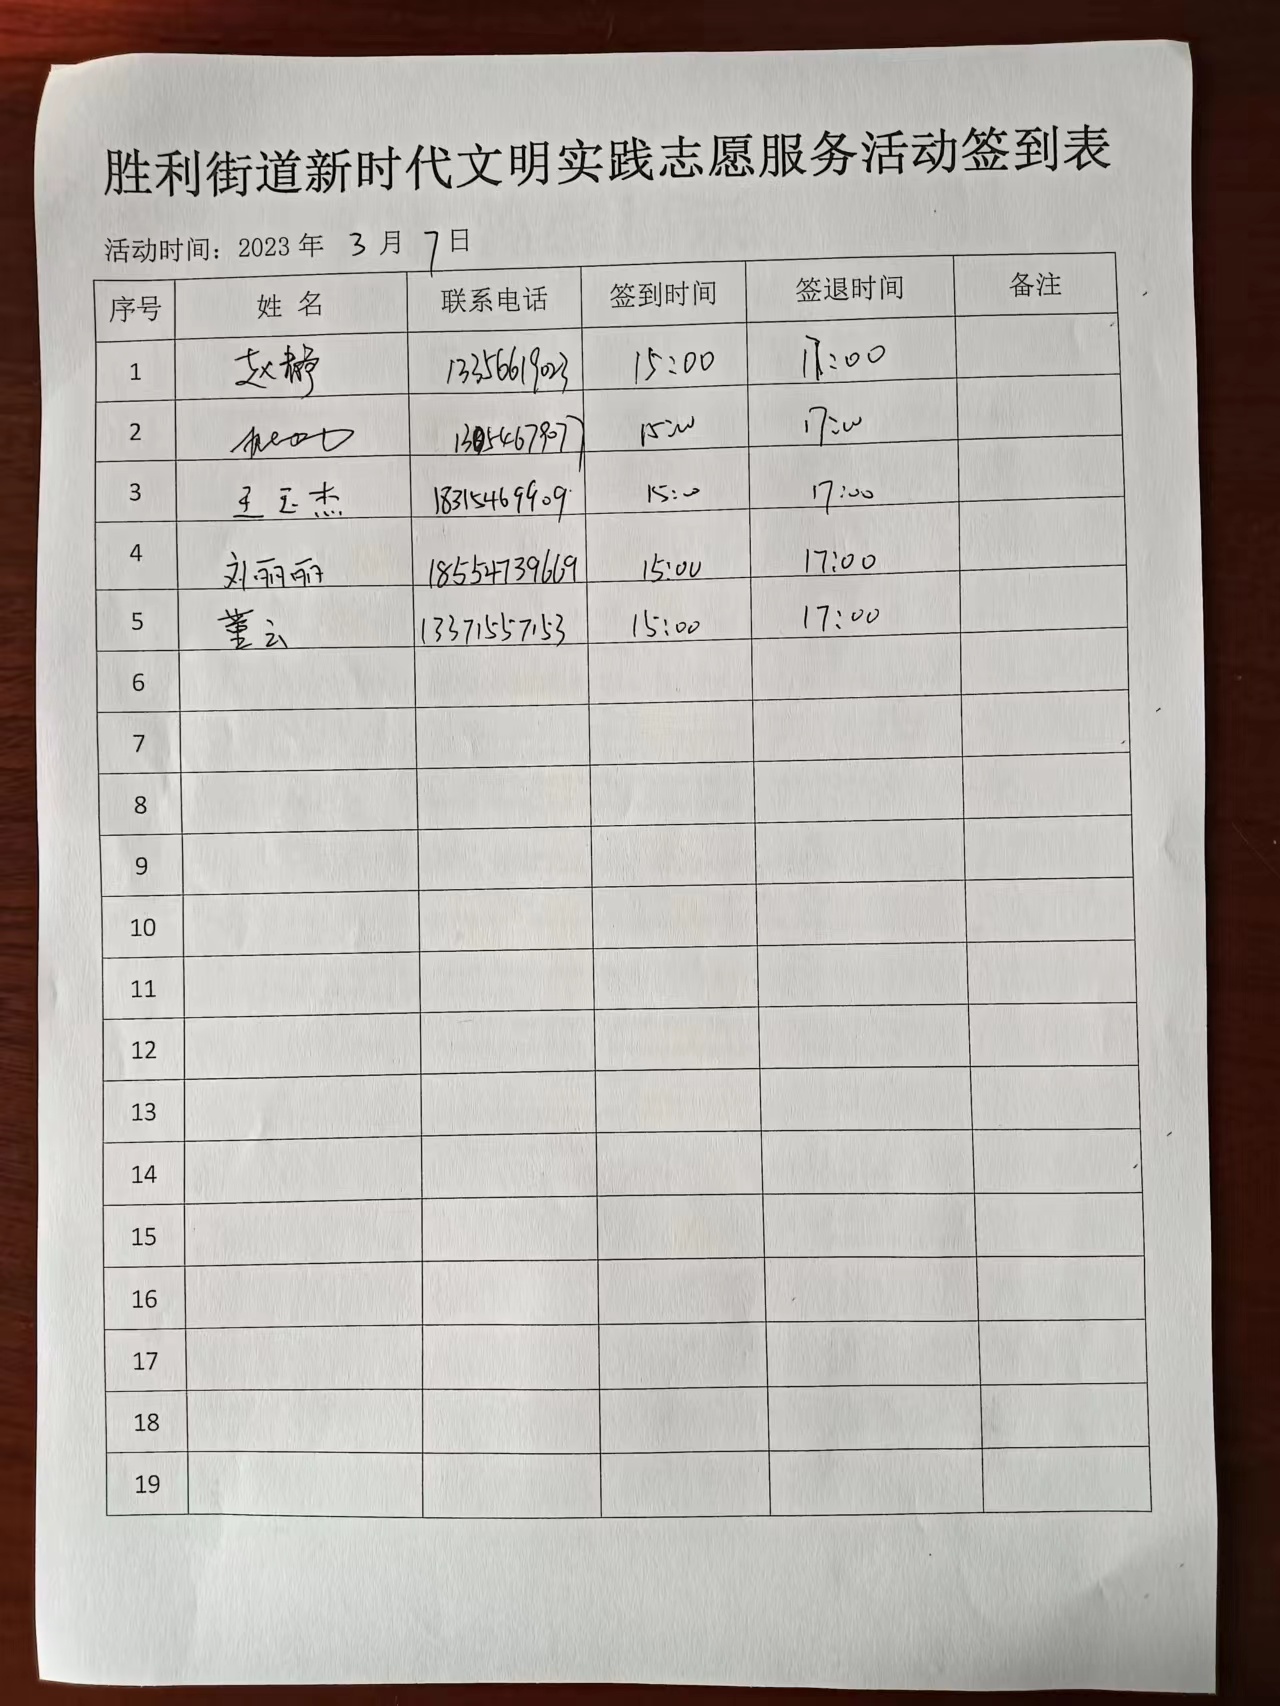 胜利街道新时代文明实践志愿服务活动签到表
活动时间：2023 年 3 月 7 日
序号 姓 名 联系电话 签到时间 签退时间 备注
1 赵静 13356619023 15:00 17:00
2 15:00 17:00
3 王玉杰 18315469909 15:00 17:00
4 刘丽丽 18554739669 15:00 17:00
5 董云 13371557153 15:00 17:00
6
7
8
9
10
11
12
13
14
15
16
17
18
19